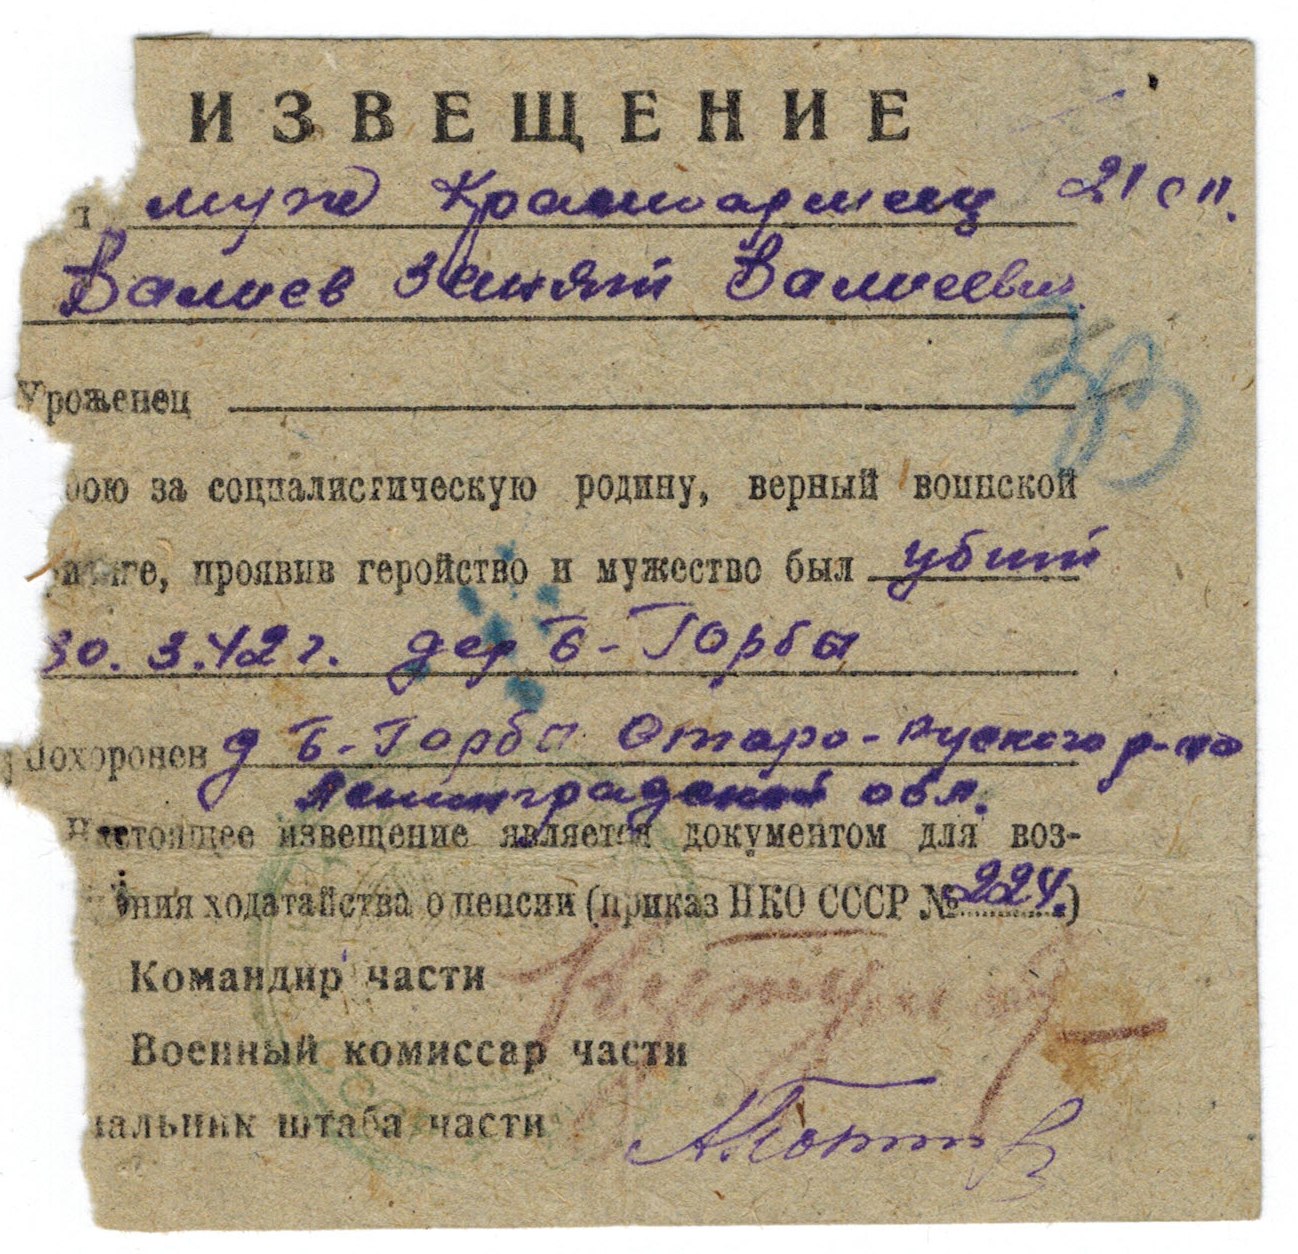 ИЗВЕЩЕНИЕ
муж Красноармеец 21 сп.
Валиев Валиевич
Уроженец
бою за социалистическую родину, верный воинской
присяге, проявив геройство и мужество был убит
30.3.42 г. дер Б-Горбы
Похоронен д Б-Горбы Старо-Руского р-на
Ленинградской обл.
Настоящее извещение является документом для воз-
ния ходатайства о пенсии (приказ НКО СССР № 224.)
Командир части
Военный комиссар части
чальник штаба части